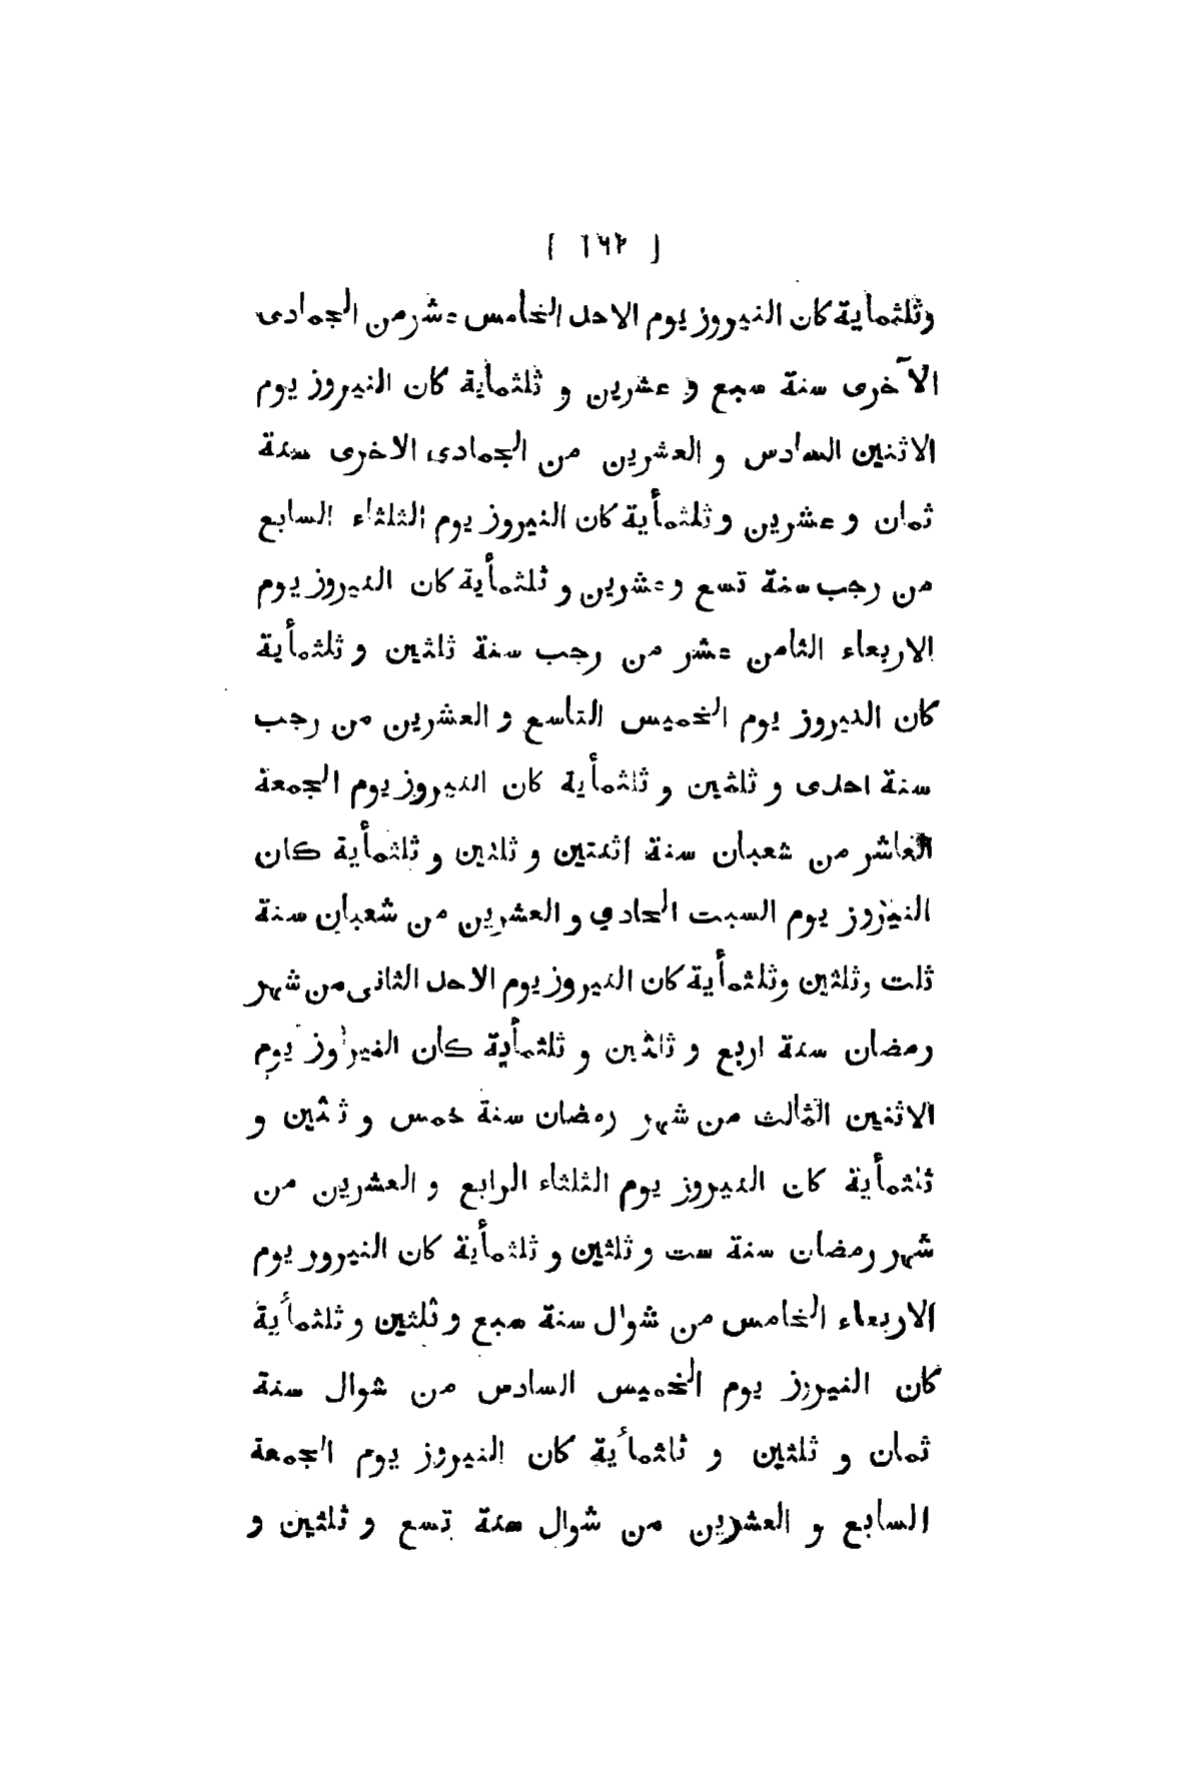 ( ١٦٢ )
وثلثماية كان النيروز يوم الاحد الخامس عشر من الجمادى
الآخرى سنة سبع و عشرين و ثلثمأية كان النيروز يوم
الاثنين السادس و العشرين من الجمادى الاخرى سنة
ثمان و عشرين و ثلثمأية كان النيروز يوم الثلثاء السابع
من رجب سنة تسع و عشرين و ثلثمأية كان النيروز يوم
الاربعاء الثامن عشر من رجب سنة ثلثين و ثلثمأية
كان النيروز يوم الخميس التاسع و العشرين من رجب
سنة احدى و ثلثين و ثلثمأية كان النيروز يوم الجمعة
العاشر من شعبان سنة اثنتين و ثلثين و ثلثمأية كان
النيروز يوم السبت الحادي و العشرين من شعبان سنة
ثلت وثلثين وثلثمأية كان النيروز يوم الاحد الثانى من شهر
رمضان سنة اربع و ثلثين و ثلثمأية كان النيروز يوم
الاثنين الثالث من شهر رمضان سنة خمس و ثلثين و
ثلثمأية كان النيروز يوم الثلثاء الرابع و العشرين من
شهر رمضان سنة ست و ثلثين و ثلثمأية كان النيرور يوم
الاربعاء الخامس من شوال سنة سبع و ثلثين و ثلثمأية
كان النيروز يوم الخميس السادس من شوال سنة
ثمان و ثلثين و ثلثمأية كان النيروز يوم الجمعة
السابع و العشرين من شوال سنة تسع و ثلثين و